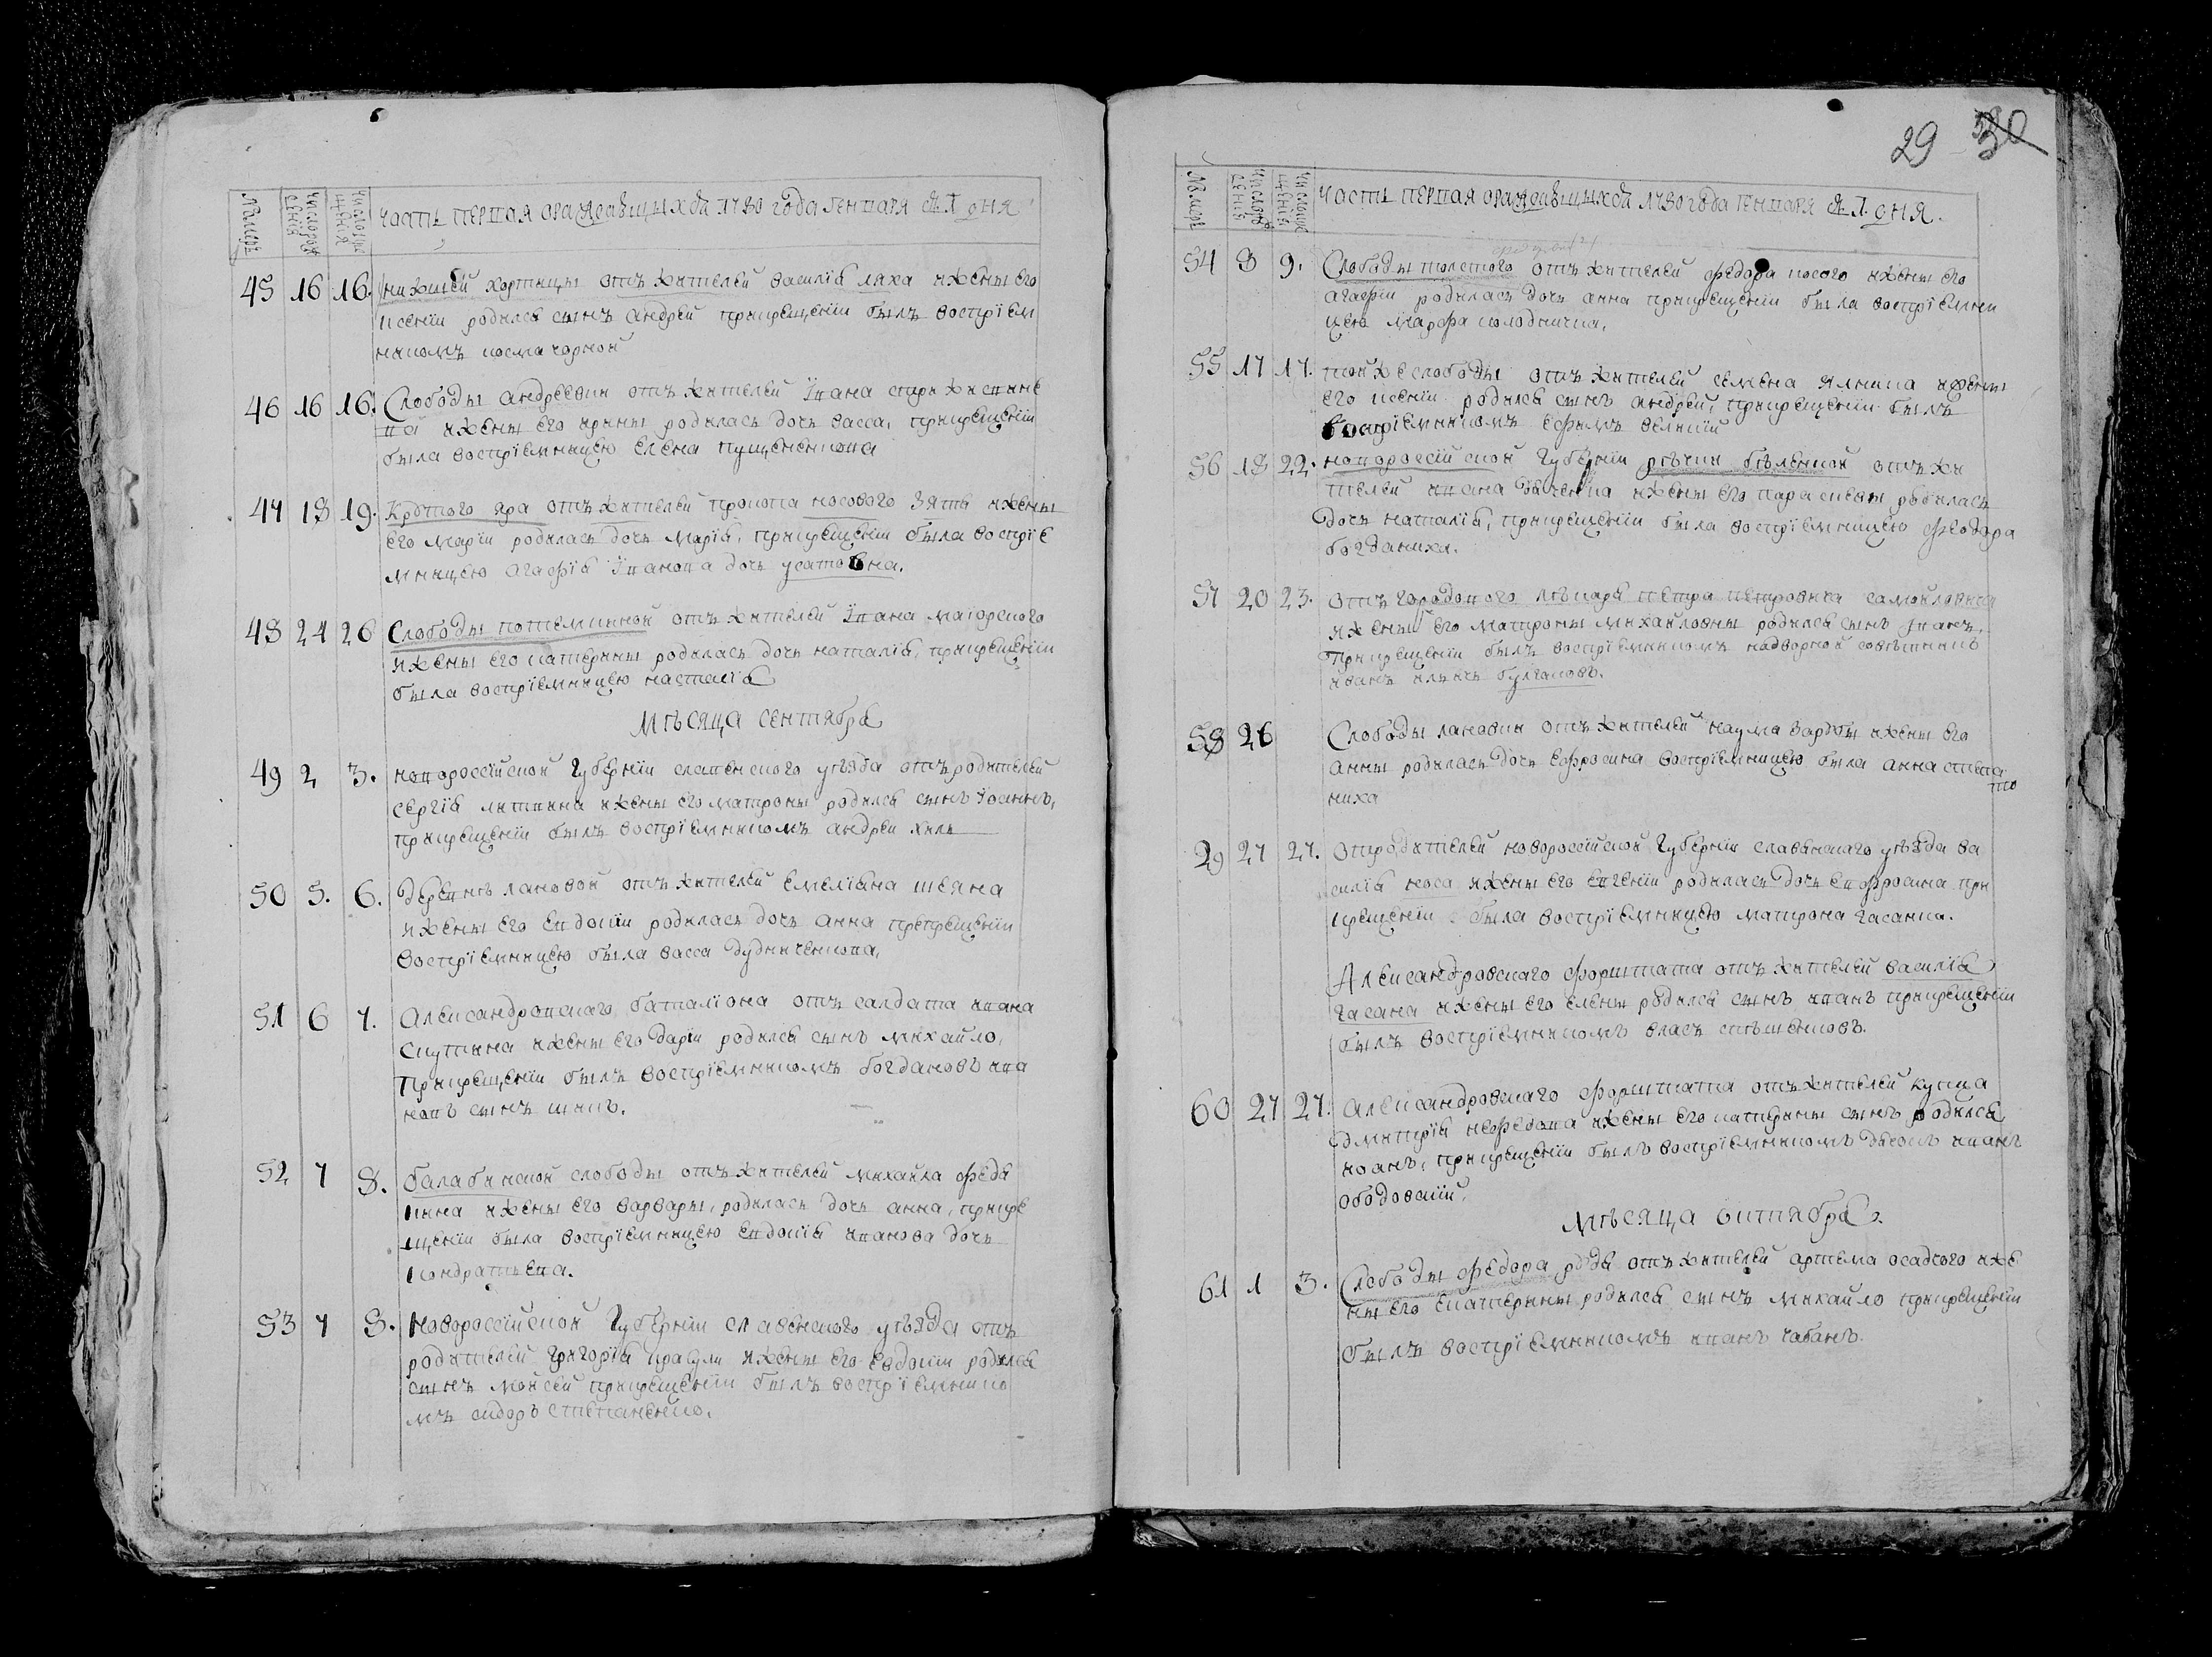 Нꙋмеръ
число рож
денїя
число кре
щенїя
часть первая ораждавщихся 1780 года генваря съ 1 дня
45 16 16. нижней хортицы отъ жителей василїя ляха ижены его
ксенїи родился сынъ андрей прикрещенїи былъ воспрїем
никомъ козма чорной
46 16 16. Слободы андреевки отъ жителей їѵана
ижены его ирины родилась дочь васса, прикрещенїи
была воспрїемницею елена пущенкова
47 18 19. Крꙋтого яра отъ жителей прокопа носового зятя ижены
его марїи родилась дочь марїя, прикрещенїи была воспрїе
мницею агафїя їванова дочь усатовна.
48 24 26 Слободы потемкиной отъ жителей ївана маїорского
ижены его катерины родилась дочь наталїя, прикрещенїи
была воспрїемницею насталїя
мѣсяца сентября
49 2 3. новороссїйской губернїи славенского уѣзда отъ родителей
сергїя литвина ижены его матроны родился сынъ їоаннъ,
прикрещенїи былъ воспрїемникомъ андреи хиль
50 5. 6. деревнѣ лановой отъ жителей емелїяна шеяна
ижены его евдокїи родилась дочь анна прекрещенїи
воспрїемницею была васса дудниченкова,
51 6 7. Александровскаго баталїона отъ салдата ивана
скутина ижены его дарїи родился сынъ михайло,
прикрещенїи былъ воспрїемникомъ богдановъ ива
новъ сынъ
52 7 8. балабинской слободы отъ жителей михайла федя
кина ижены его варвары, родилась дочь анна, прикре
щенїи была воспрїемницею евдокїя иванова дочь
кондратьева.
53 7 8. новороссїйской губернїи славенского уѣзда отъ
родителей григорїя кравули ижены его евдокїи родился
сынъ мойсей прикрещенїи былъ воспрїемнико
мъ сидоръ степаненко.
29 30
Нꙋмеръ
число рож
денїя
число кре
щенїя
часть первая ораждавщихся 1780 года генваря съ 1 дня.
54 8 9. Слободы толстого отъ жителей федора косого ижены его
агафїи родилась дочь анна прикрещенїи была воспрїемни
цею марфа колодничка,
55 17 17. тойже слободы отъ жителей семена ялника ижены
его ксенїи родился сынъ андрей, прикрещенїи былъ
воспрїемникомъ ефимъ великїй
56 18 22. новоросїйской губернїи рѣчки бѣленкой отъ жи
телей ивана ижены его параскевы родилась
дочь наталїя, прикрещенїи была воспрїемницею феодора
богданиха.
57 20 23. отъ городового лѣкаря петра петровича самойловича
ижены его матроны михайловны родился сынъ їванъ,
прикрещенїи былъ воспрїемникомъ надворной совѣтникъ
иванъ иличъ булгаковъ.
58 26 Слободы лановки отъ жителей наума варивы ижены его
анны родилась дочь ефросина воспрїемницею была анна степа
ниха
29 27 27. отродителей новороссїйской губернїи славянскаго уѣзда ва
силїя носа ижены его евгенїи родилась дочь евфросина при
крещенїи была воспрїемницею матрона гасанка.
Александровскаго форштата отъ жителей василїя
гасана ижены его елены родился сынъ иванъ прикрещенїи
былъ воспрїемникомъ власъ спѣшенковъ.
60 27 27. александровскаго форштата отъ жителей купца
дмитрїя нефедова ижены его катерины сынъ родился
иоанъ, прикрещенїи былъ воспрїемникомъ дьячокъ иванъ
ободовскїй,
мѣсяца октября.
61 1 3. Слободы федора отъ жителей артема осадчого иже
ны его екатерины родился сынъ михайло прикрещенїи
былъ воспрїемникомъ иванъ чабанъ